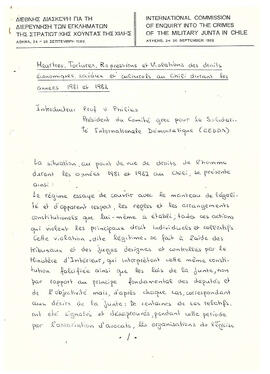 ΔΙΕΘΝΗΣ ΔΙΑΣΚΕΨΗ ΓΙΑ ΤΗ
ΔΙΕΡΕΥΝΗΣΗ ΤΩΝ ΕΓΚΛΗΜΑΤΩΝ
ΤΗΣ ΣΤΡΑΤΙΩΤΙΚΗΣ ΧΟΥΝΤΑΣ ΤΗΣ ΧΙΛΗΣ
INTERNATIONAL COMMISSION
OF ENQUIRY INTO THE CRIMES
OF THE MILITARY JUNTA IN CHILE
Meurtres, Tortures, Repressions et Violations des droits
économiques, sociaux et culturels au Chili durant les
années 1981 et 1982
Introducteur Prof.
Président du Comité grec pour la Solidari-
té Internationale Démocratique (EEDDA)
La situation, au point de vue de droits de l'homme
durant les années 1981 et 1982 au Chili, se présente
ainsi:
Le régime essaye de couvrir avec le manteau de légali-
té et d'apparent respect, les regles et les arrangements
constitutionels que lui-même a établi, toutes ces actions
qui violent les principaux droits individuels et collectifs
Cette violation, dite légitime, se fait à l'aide des
tribunaux et des juges designés et controlés par le
Ministère d'Interieur, qui interprètent cette même consti-
tution falcifiée ainsi que les lois de la junte, non
par rapport au principe fondamental des
et l'objectivité mais, d'après chaque cas, correspondant
aux désirs de la junte. De centaines de cas relatifs,
ont été signalés et pendant cette periode
par l'association d'avocats, les organisations de l'Eglise